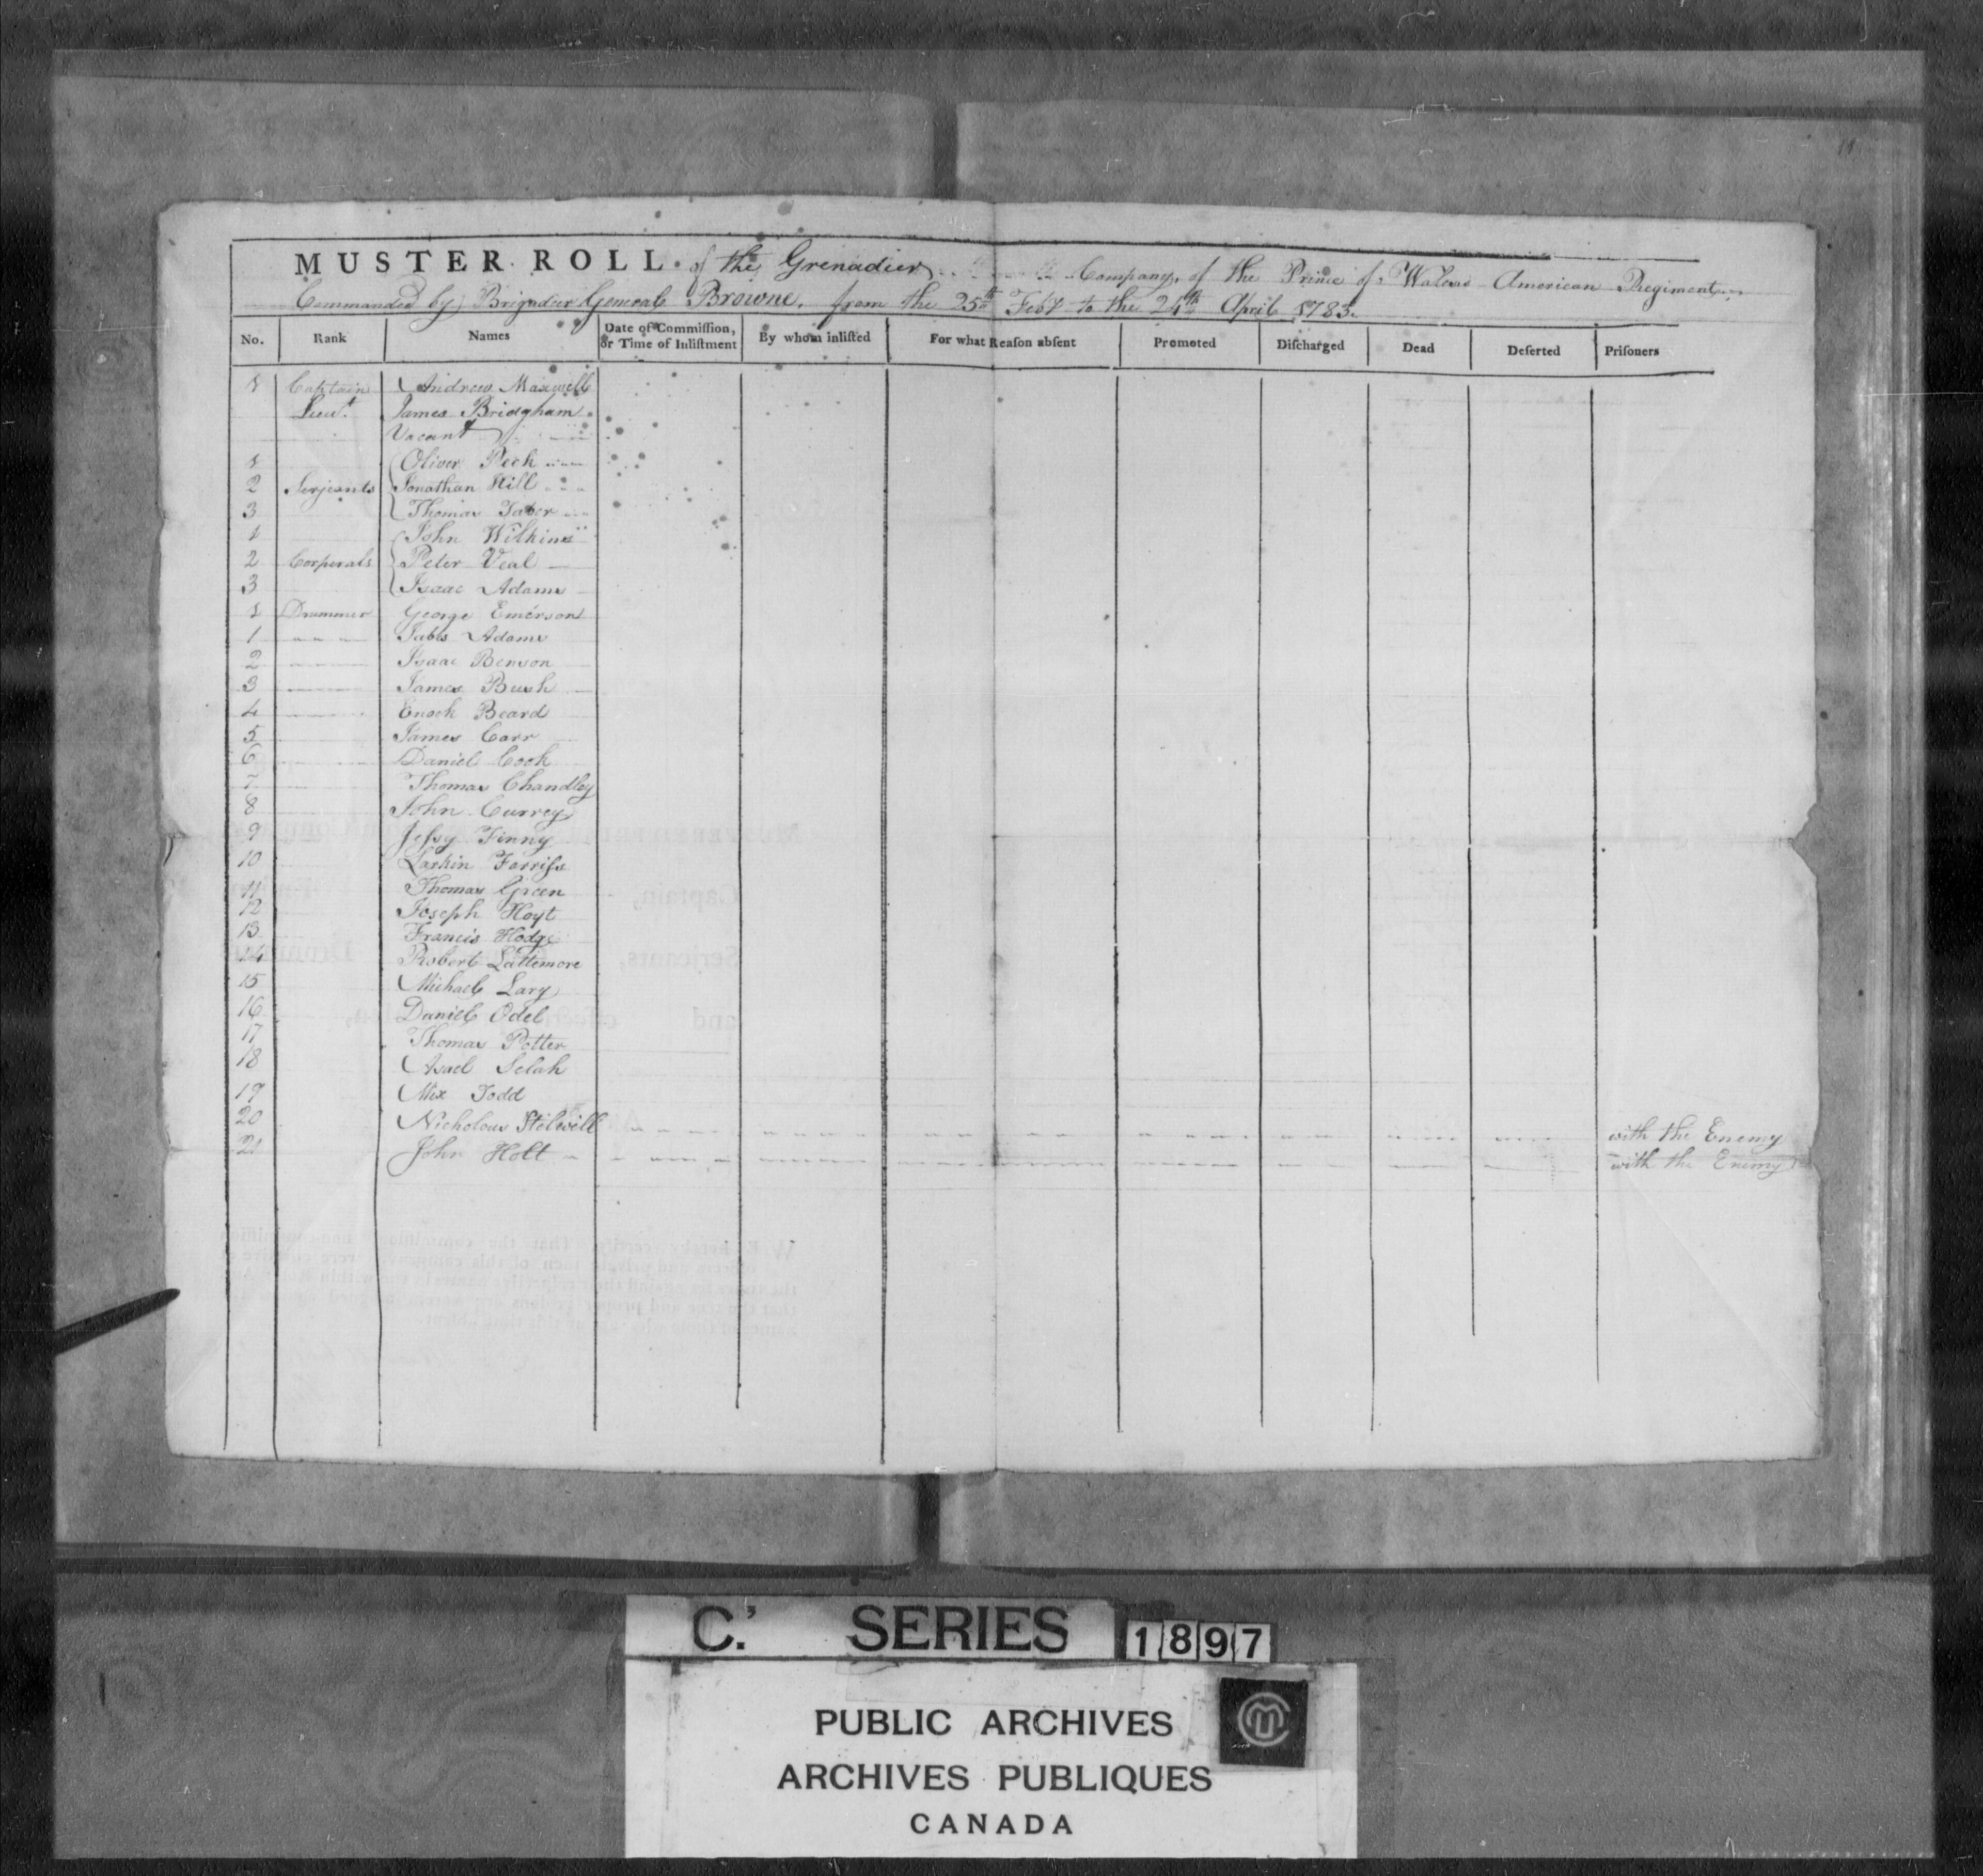 MUSTER ROLL of the Grenadier Company of the Prince of Wales's American Regiment
Commanded by Brigadier General Browne. from the 25th Feby to the 24th April 1783.
No. Rank Names Date of Commiſſion, or Time of Inliſtment By whom inliſted For what Reaſon abſent Promoted Diſcharged Dead Deſerted Priſoners
1 Captain Andrew Maxwell
Lieut. James Bridgham
Vacant
1 Oliver Peck
2 Serjeants Jonathan Hill
3 Thomas Tabor
1 John Wilkins
2 Corporals Peter Veal
3 Isaac Adams
1 Drummer George Emerson
1 Jabes Adams
2 Isaac Benson
3 James Bush
4 Enoch Beard
5 James Carr
6 Daniel Cook
7 Thomas Chandley
8 John Currey
9 Jeſsy Finny
10 Larkin Farriſs
11 Thomas Green
12 Joseph Hoyt
13 Francis Hodge
14 Robert Lattemore
15 Michael Lary
16 Daniel Odel
17 Thomas Potter
18 Asael Selah
19 Mix Todd
20 Nicholous Stilwill with the Enemy
21 John Holt with the Enemy
C.' SERIES 1897
PUBLIC ARCHIVES
ARCHIVES PUBLIQUES
CANADA